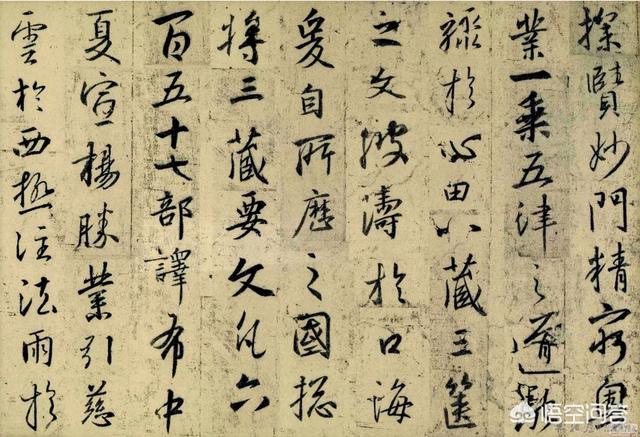 探賾妙門精窮奧
業一乘五律之道馳
驟於心田八藏三篋
之文波濤於口海
爰自所歷之國總
將三藏要文凡六
百五十七部譯布中
夏宣揚勝業引慈
雲於西極注法雨於
悟空问答